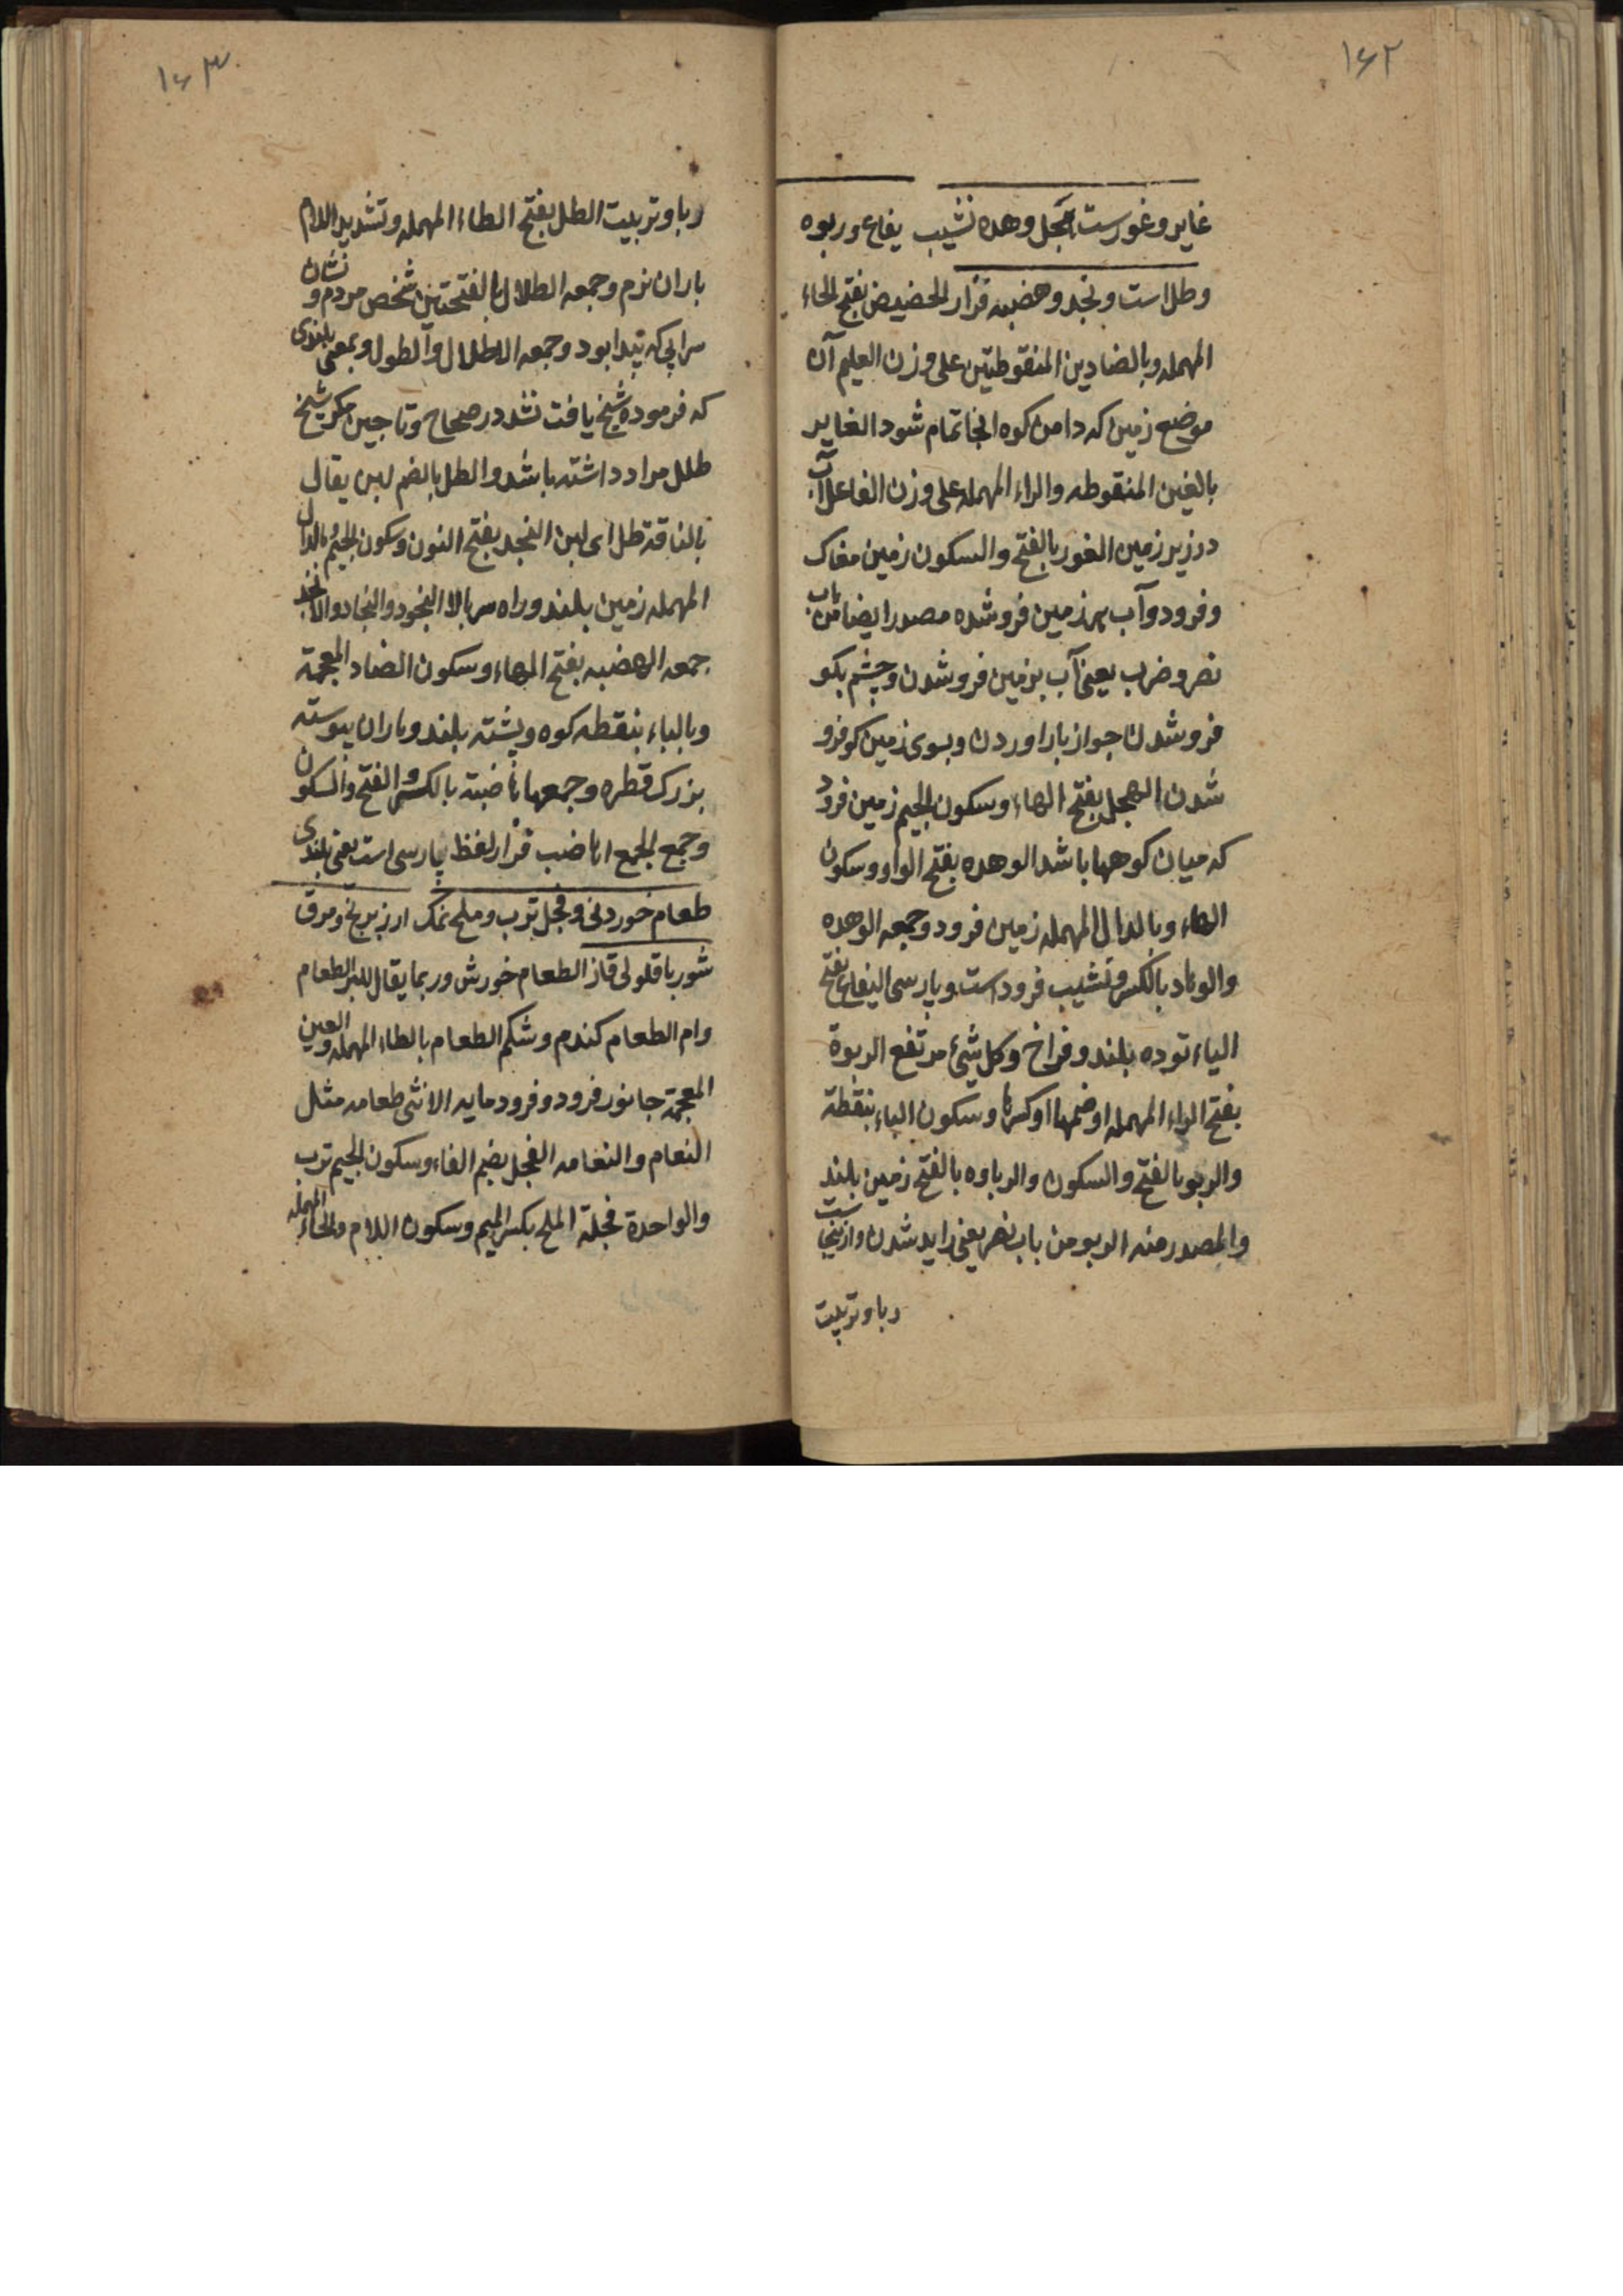 ۱۶۲
غایر و غورست هجل وهده نشیب یفاع و ربوه
و طل است و نجد و هضبه فراز الحضیض بفتح الحاء
المهمله و بالضادین المنقوطتین علی وزن العلیم آن
موضع زمین که دامن کوه انجا تمام شود الغایر
بالغین المنقوطه والراء المهمله علی وزن الفاعل آب
در زیر زمین الغور بالفتح والسکون زمین مغاک
و فرود و آب بر زمین فروشده مصدر ایضا من باب
نصر و ضرب یعنی آب بزمین فروشدن و چشم بکو
فروشدن جواز بار اوردن و بسوی زمین کو فرو
شدن الهجل بفتح الهاء و سکون الجیم زمین فرود
که میان کوهها باشد الوهده بفتح الواو و سکون
الهاء و بالدال المهمله زمین فرود و جمعه الوهده
والوهاد بالکسر و نشیب فرود است و پارسی الیفاع بفتح
الیاء توده بلند و فراخ و کل شیء مرتفع الربوة
بفتح الراء المهمله او ضمها او کسرها و سکون الباء بنقطة
والربو بالفتح والسکون والرباوه بالفتح زمین بلند
والمصدر منه الربو من باب نصر یعنی زاید شدن و ازینجاست
ربا و تربیت
۱۶۳
ربا و تربیت الطل بفتح الطاء المهمله و تشدید اللام
باران نرم و جمعه الطلال بالفتحتین شخص مردم و نشان
سرایی که پیدا بود و جمعه الاطلال والطول و بمعنی بلندی
که فرموده شیخ یافت نشد در صحاح و تاجین مکر شیخ
طلل مراد داشته باشد والطل بالضم لبن یقال
بالناقة طل ای لبن النجد بفتح النون و سکون الجیم بالدال
المهمله زمین بلند و راه سر بالا النجود والنجاد والانجد
جمعه الهضبه بفتح الهاء و سکون الضاد المعجمة
و بالباء بنقطه کوه و پشته بلند و باران پیوسته
بزرک قطره و جمعها هاضبة بالکسر والفتح والسکون
و جمع الجمع اهاضب فراز لفظ پارسی است یعنی بلندی
طعام خوردنی و فجل ترب و ملح نمک ارز برنج و مرق
شوربا قلولی قاز الطعام خورش و ربما یقال للبر الطعام
وام الطعام کندم و شکم الطعام بالطاء المهمله والعین
المعجمة جانور فرود و فرود مایه الانثی طعامه مثل
النعام والنعامه الفجل بضم الفاء و سکون الجیم ترب
والواحدة فجلة الملح بکسر المیم و سکون اللام والحاء المهمله